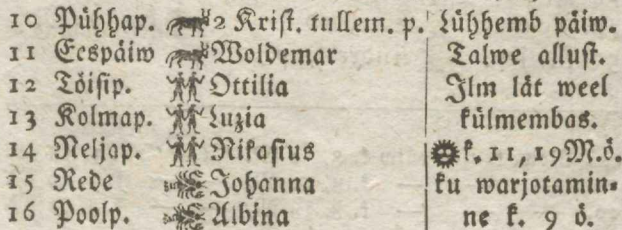 10 Pühhap. 2 Krist. tullem. p. Lühhemb päiw.
11 Ecspäiw Woldemar Talwe allust.
12 Töisip. Ottilia Ilm lät weel
13 Kolmap. Luzia külmembas.
14 Neljap. Nikasius k. 11, 19 M. ö.
15 Rede Johanna ku warjotamin-
16 Poolp. Albina ne k. 9 ö.